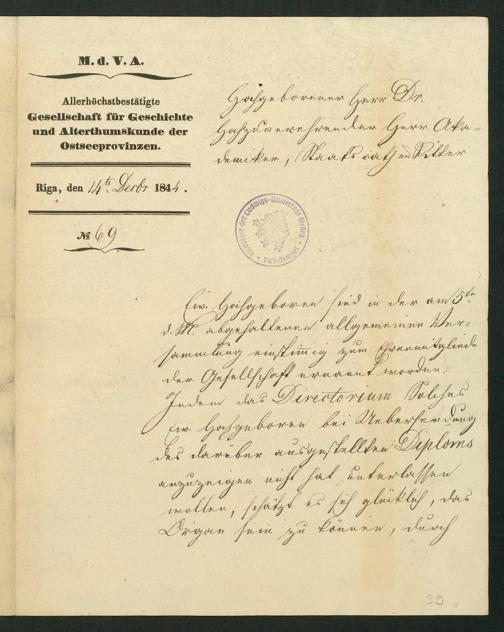 M. d. V. A.
Allerhöchstbestätigte
Gesellschaft für Geschichte
und Alterthumskunde der
Ostseeprovinzen.
Riga, den 14ten Decbr 1844.
№ 69
Hochgeborener Herr Dr.
Hochzuverehrender Herr Aka-
demiker, Staatsrath und Ritter
Ew. Hochgeboren sind in der am 5ten
d. M. abgehaltenen allgemeinen Ver-
sammlung einstimmig zum Ehrenmitgliede
der Gesellschaft ernannt worden.
Indem das Directorium Solches
Ew. Hochgeboren bei Uebersendung
des darüber ausgestellten Diploms
anzuzeigen nicht hat unterlassen
wollen, schätzt es sich glücklich, das
Organ sein zu können, durch
59